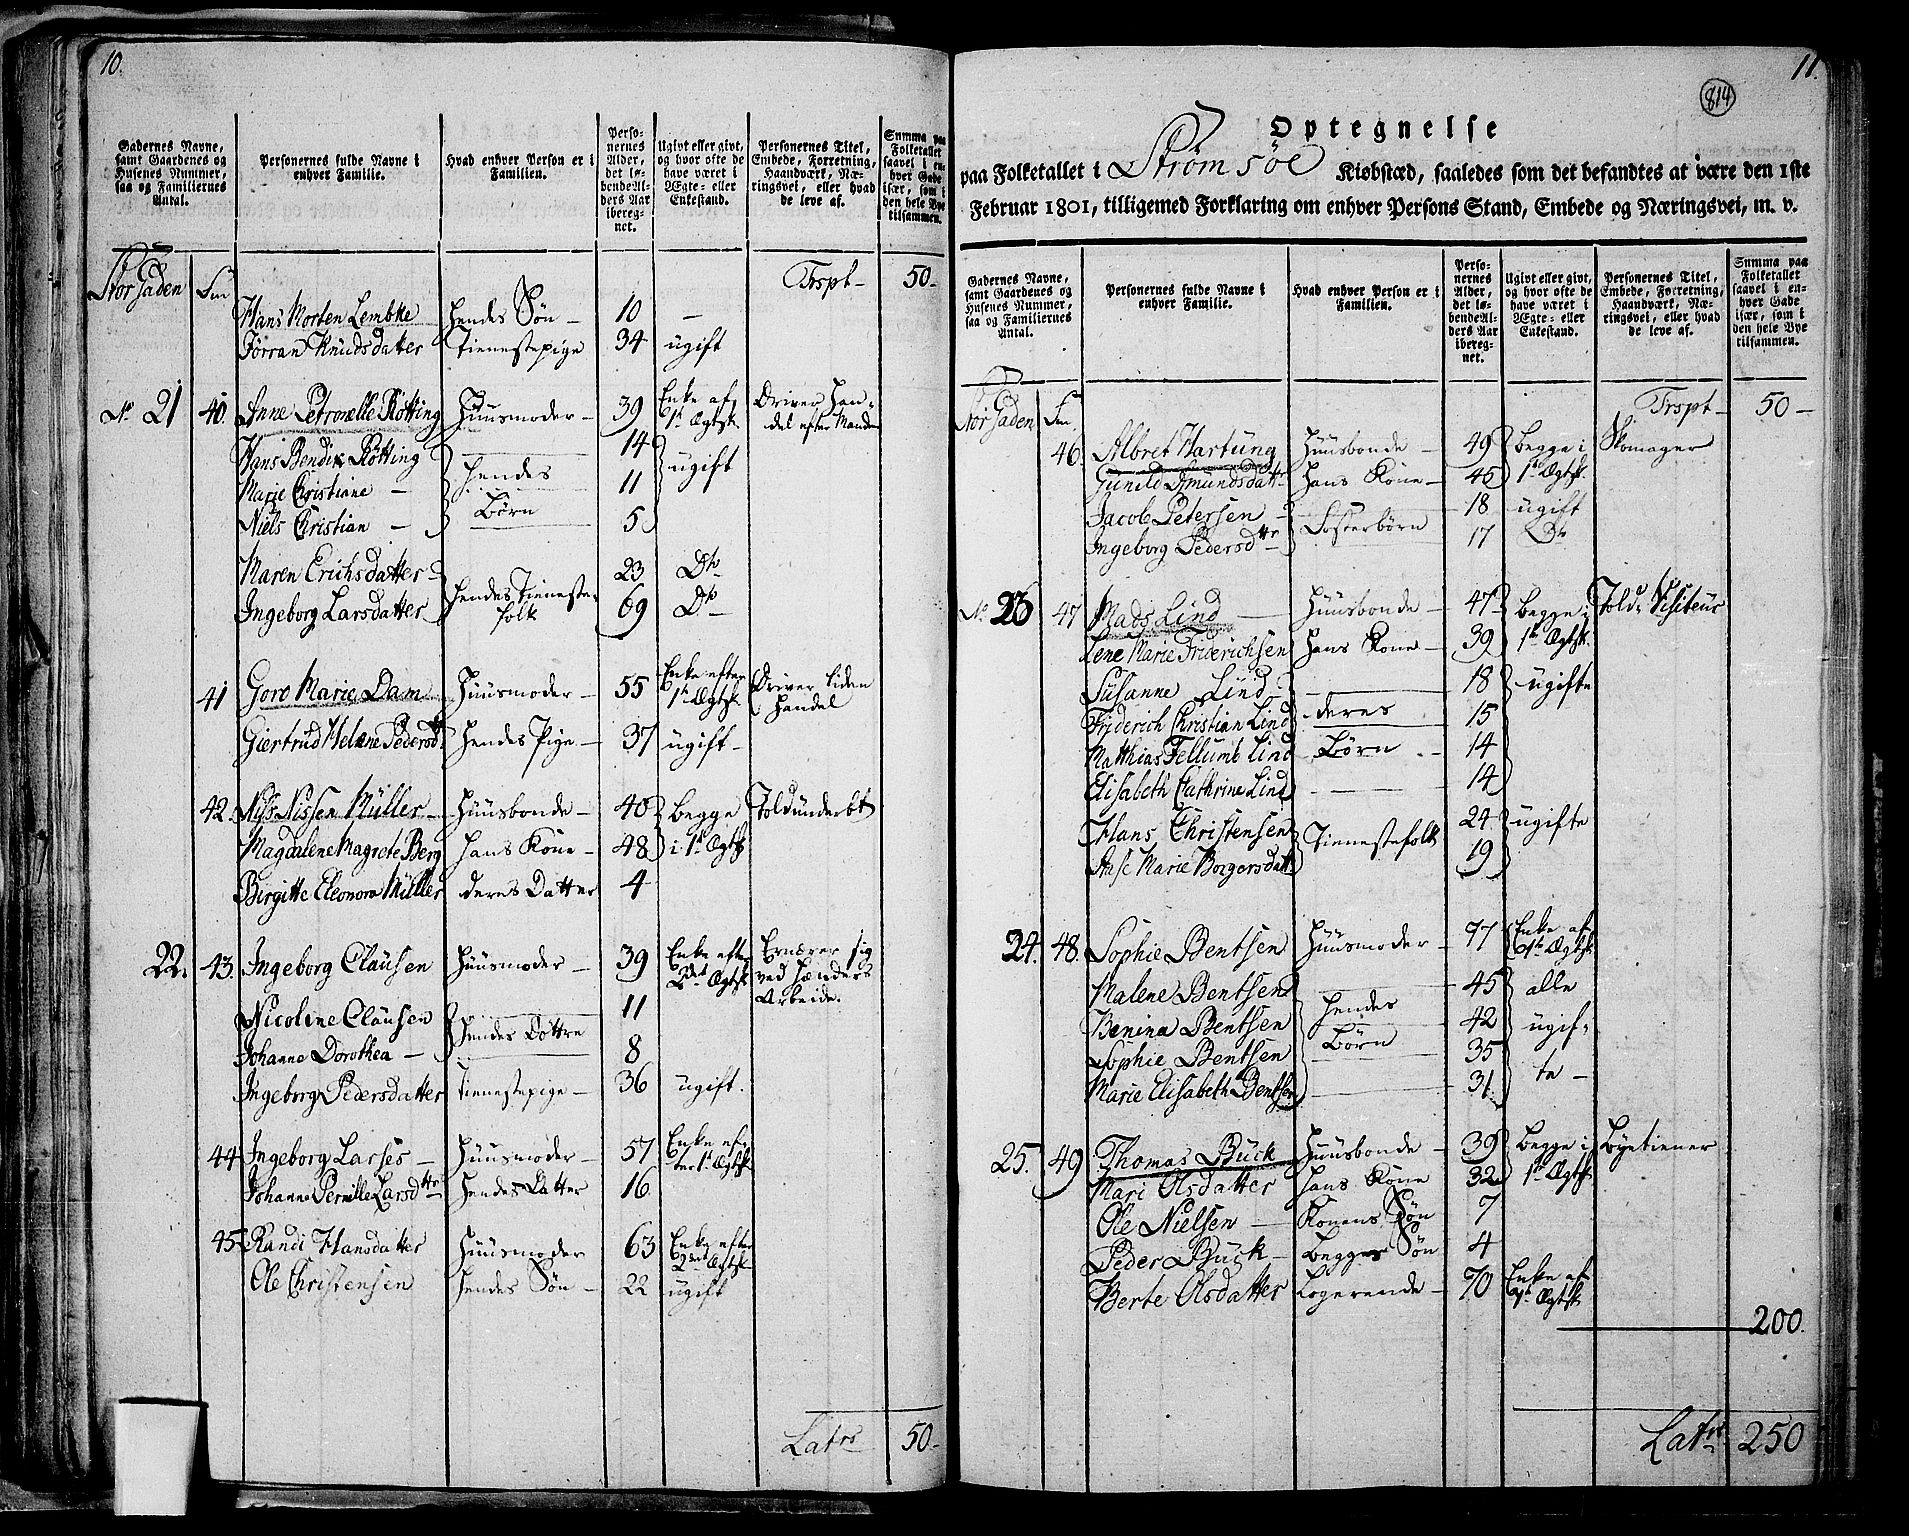 10.
Gadernes Navne, samt Gaardenes og Husenes Nummer, saa og Familiernes Antal.
Personernes fulde Navne i enhver Familie.
Hvad enhver Person er i Familien.
Personernes Alder, det løbende Alders Aar iberegnet.
Ugivt eller givt, og hvor ofte de have været i Ægte- eller Enkestand.
Personernes Titel, Embede, Forretning, Haandværk, Næringsvei, eller hvad de leve af.
Summa paa Folketallet saavel i enhver Gade især, som i den hele Bye tilsammen.
Stor Gaden Fm Trspt - 50 -
Hans Morten Lembke Hendes Søn - 10 -
Jørran Knudsdatter Tienestepige 34 ugift
No 21 40. Anne Petronelle Røtting Huusmoder - 39 Enke af 1te Ægtsk. Driver Handel efter Manden
Hans Bendix Røtting 14
Marie Christiane - Hendes Børn 11 ugift
Niels Christian - 5
Maren Erichsdatter - 23 Do
Ingeborg Larsdatter Hendes Tienestefolk 69 Do -
41 Goro Marie Dam Huusmoder - 55 Enke efter 1te Ægtsk Driver liden Handel
Giertrud Helene Pedersdtr Hendes Pige - 37 ugift -
42. Niss Nissen Müller - Huusbonde - 40 Begge i 1te Ægtsk Toldunderbt
Magdalene Magrete Berg Hans Kone - 48
Birgitte Eleonora Müller deres Datter 4
22. 43. Ingeborg Clausen Huusmoder - 39 Enke efter 2det Ægtsk Ernærer sig ved Hænders Arbeide.
Nicoline Clausen 11
Johanne Dorothea - Hendes Døttre 8
Ingeborg Pedersdatter Tienestepige - 36 ugift.
44 Ingeborg Larses - Huusmoder - 57 Enke efter 1te Ægtsk
Johanne Pernille Larsdtr Hendes Datter 16
45 Randi Hansdatter Huusmoder 63 Enke efter 2det Ægtsk
Ole Christensen Hendes Søn - 22 ugift
Latrs 50 -
11.
814
Optegnelse
paa Folketallet i Strømsøe Kiøbstæd, saaledes som det befandtes at være den 1ste
Februar 1801, tilligemed Forklaring om enhver Persons Stand, Embede og Næringsvei, m. v.
Gadernes Navne, samt Gaardenes og Husenes Nummer, saa og Familiernes Antal.
Personernes fulde Navne i enhver Familie.
Hvad enhver Person er i Familien.
Personernes Alder, det løbende Alders Aar iberegnet.
Ugivt eller givt, og hvor ofte de have været i Ægte- eller Enkestand.
Personernes Titel, Embede, Forretning, Haandværk, Næringsvei, eller hvad de leve af.
Summa paa Folketallet saavel i enhver Gade især, som i den hele Bye tilsammen.
Stor Gaden Fm. Trspt - 50 -
46. Albret Hartung Huusbonde - 49 Begge i 1te Ægtsk. Skomager
Gunild Amundsdatt- Hans Kone - 45
Jacob Petersen - Fosterbørn 18 ugift
Ingeborg Pedersdtr 17 Do
No 23 47 Mads Lind - Huusbonde - 47 Begge i 1te Ægtsk. Told Visiteur
Lene Marie Friderichsen Hans Kone - 39
Susanne Lind - 18 ugifte
Friderich Christian Lind deres 15
Matthias Fellumb Lind Børn - 14
Elisabeth Cathrine Lind - 14
Hans Christensen Tienestefolk 24 ugifte
Anse Marie Borgersdatt. 19
24. 48. Sophie Bentsen Huusmoder - 77 Enke af 1te Ægtsk
Malene Bentsen 45 alle
Benina Bentsen Hendes 42 ugif-
Sophie Bentsen Børn 35
Marie Elisabeth Bentsen 31 te -
25. 49 Thomas Buck Huusbonde - 39 Begge i 1te Ægtsk Byetiener
Mari Olsdatter Hans Kone 32
Ole Nielsen - Konens Søn 7
Peder Buck - Begges Søn 4
Berte Olsdatter Logerende - 70 Enke af 1te Ægtsk
200.
Latrs 250